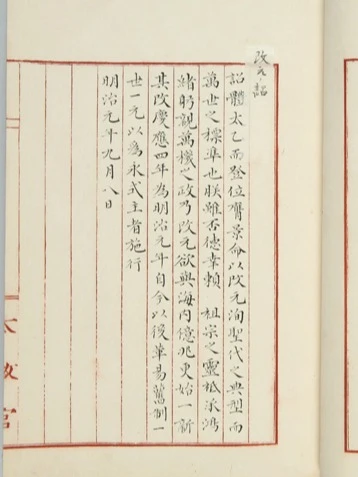 改元詔
詔體太乙而登位膺景命以改元洵聖代之典型而
萬世之標準也朕雖否德幸賴 祖宗之靈祗承鴻
緒躬親萬機之政乃改元欲與海內億兆更始一新
其改慶應四年為明治元年自今以後革易舊制一
世一元以為永式主者施行
明治元年九月八日
太政官